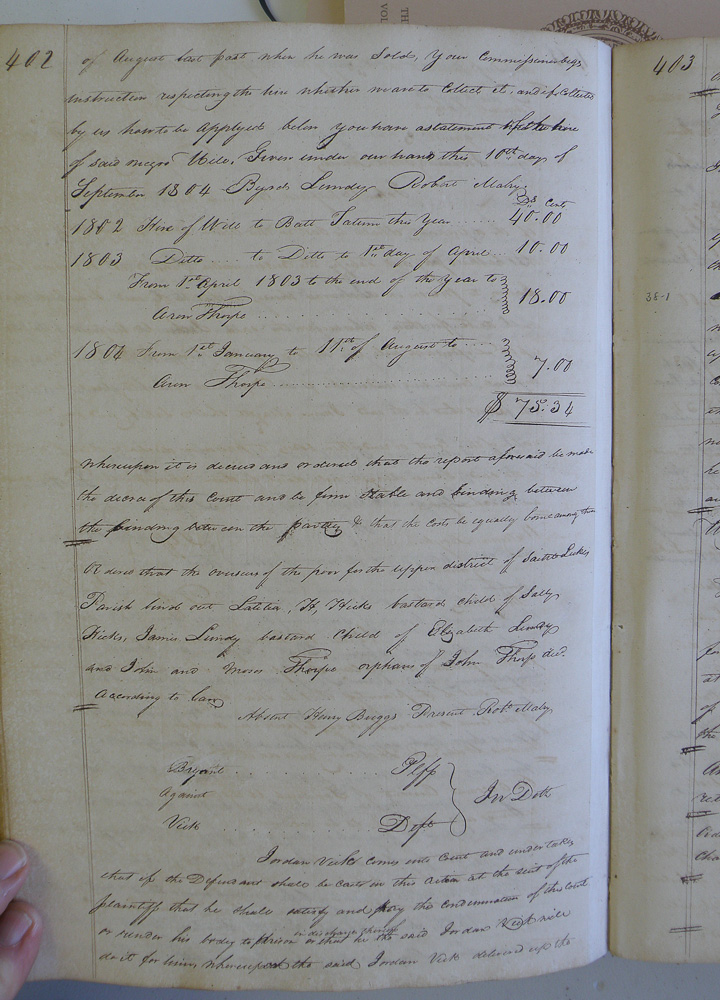 402
of August last past when he was Sold, Your Commissioners begs
instruction respecting the hire whether we are to Collect it, and if Collected
by us how to be Applyed below you have a statement of the hire
of said negroe Will. Given under our hands this 10th day of
September 1804 Byrd Lundy Robert Mabry
Ds Cents
1802 Hire of Will to Batt Tatum this Year ...... 40.00
1803 Ditto .... to Ditto to 1st day of April ... 10.00
From 1st April 1803 to the end of the Year to
Aron Thorpe .................. 18.00
1804 From 1st January to 11th of August to .....
Aron Thorpe .................. 7.00
$ 75.34
Whereupon it is decreed and ordered that the report aforesaid be made
the decree of this Court and be firm Stable and binding between
the binding between the parties & that the Costs be equally borne among them
Ordered that the overseers of the poor for the upper district of Saint Lukes
Parish bind out Latitia, H, Hicks bastard child of Sally
Hicks, James Lundy bastard Child of Elizabeth Lundy
and John and Moses Thorpe orphans of John Thorp dec.
According to Law
Absent Henry Briggs Present Robt. Mabry
Bryant ........ Plff
Against
Vick ........ Deft
In Debt
Jordan Vick comes into Court and undertakes
that if the Defendant shall be Cast in this action at the suit of the
plaintiff that he shall satisfy and pay the Condemnation of the Court
or render his body to prison in discharge thereof or that he the said Jordan Vick will
do it for him, whereupon the said Jordan Vick delivered up the
403
38-1